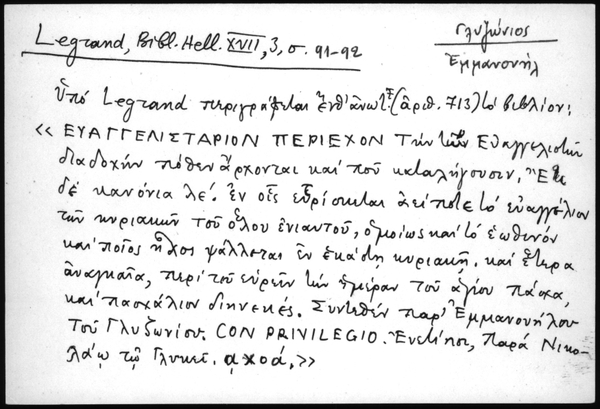 Legrand, Bibl. Hell. XVII, 3, σ. 91-92
Γλυζώνιος
Ἐμμανουήλ
Ὑπὸ Legrand περιγράφεται ἐνθ' ἀνωτ. (ἀριθ. 713) τὸ βιβλίον:
« ΕΥΑΓΓΕΛΙΣΤΑΡΙΟΝ ΠΕΡΙΕΧΟΝ Τὴν τῶν Εὐαγγελιστῶν
διαδοχὴν πόθεν ἄρχονται καὶ ποῦ καταλήγουσιν. Ἔτι
δὲ κανόνια λε΄. ἐν οἷς εὑρίσκεται ἀείποτε τὸ εὐαγγέλιον
τῶν κυριακῶν τοῦ ὅλου ἐνιαυτοῦ, ὁμοίως καὶ τὸ ἑωθινόν
καὶ ποῖος ἦχος ψάλλεται ἐν ἑκάστῃ κυριακῇ. καὶ ἕτερα
ἀναγκαῖα, περὶ τοῦ εὑρεῖν τὴν ἡμέραν τοῦ ἁγίου πάσχα,
καὶ πασχάλιον διηνεκές. Συντεθὲν παρ' Ἐμμανουήλου
Τοῦ Γλυζωνίου. CON PRIVILEGIO. Ἐνετίησι, Παρὰ Νικο-
λάῳ τῷ Γλυκεῖ. αχοά. »